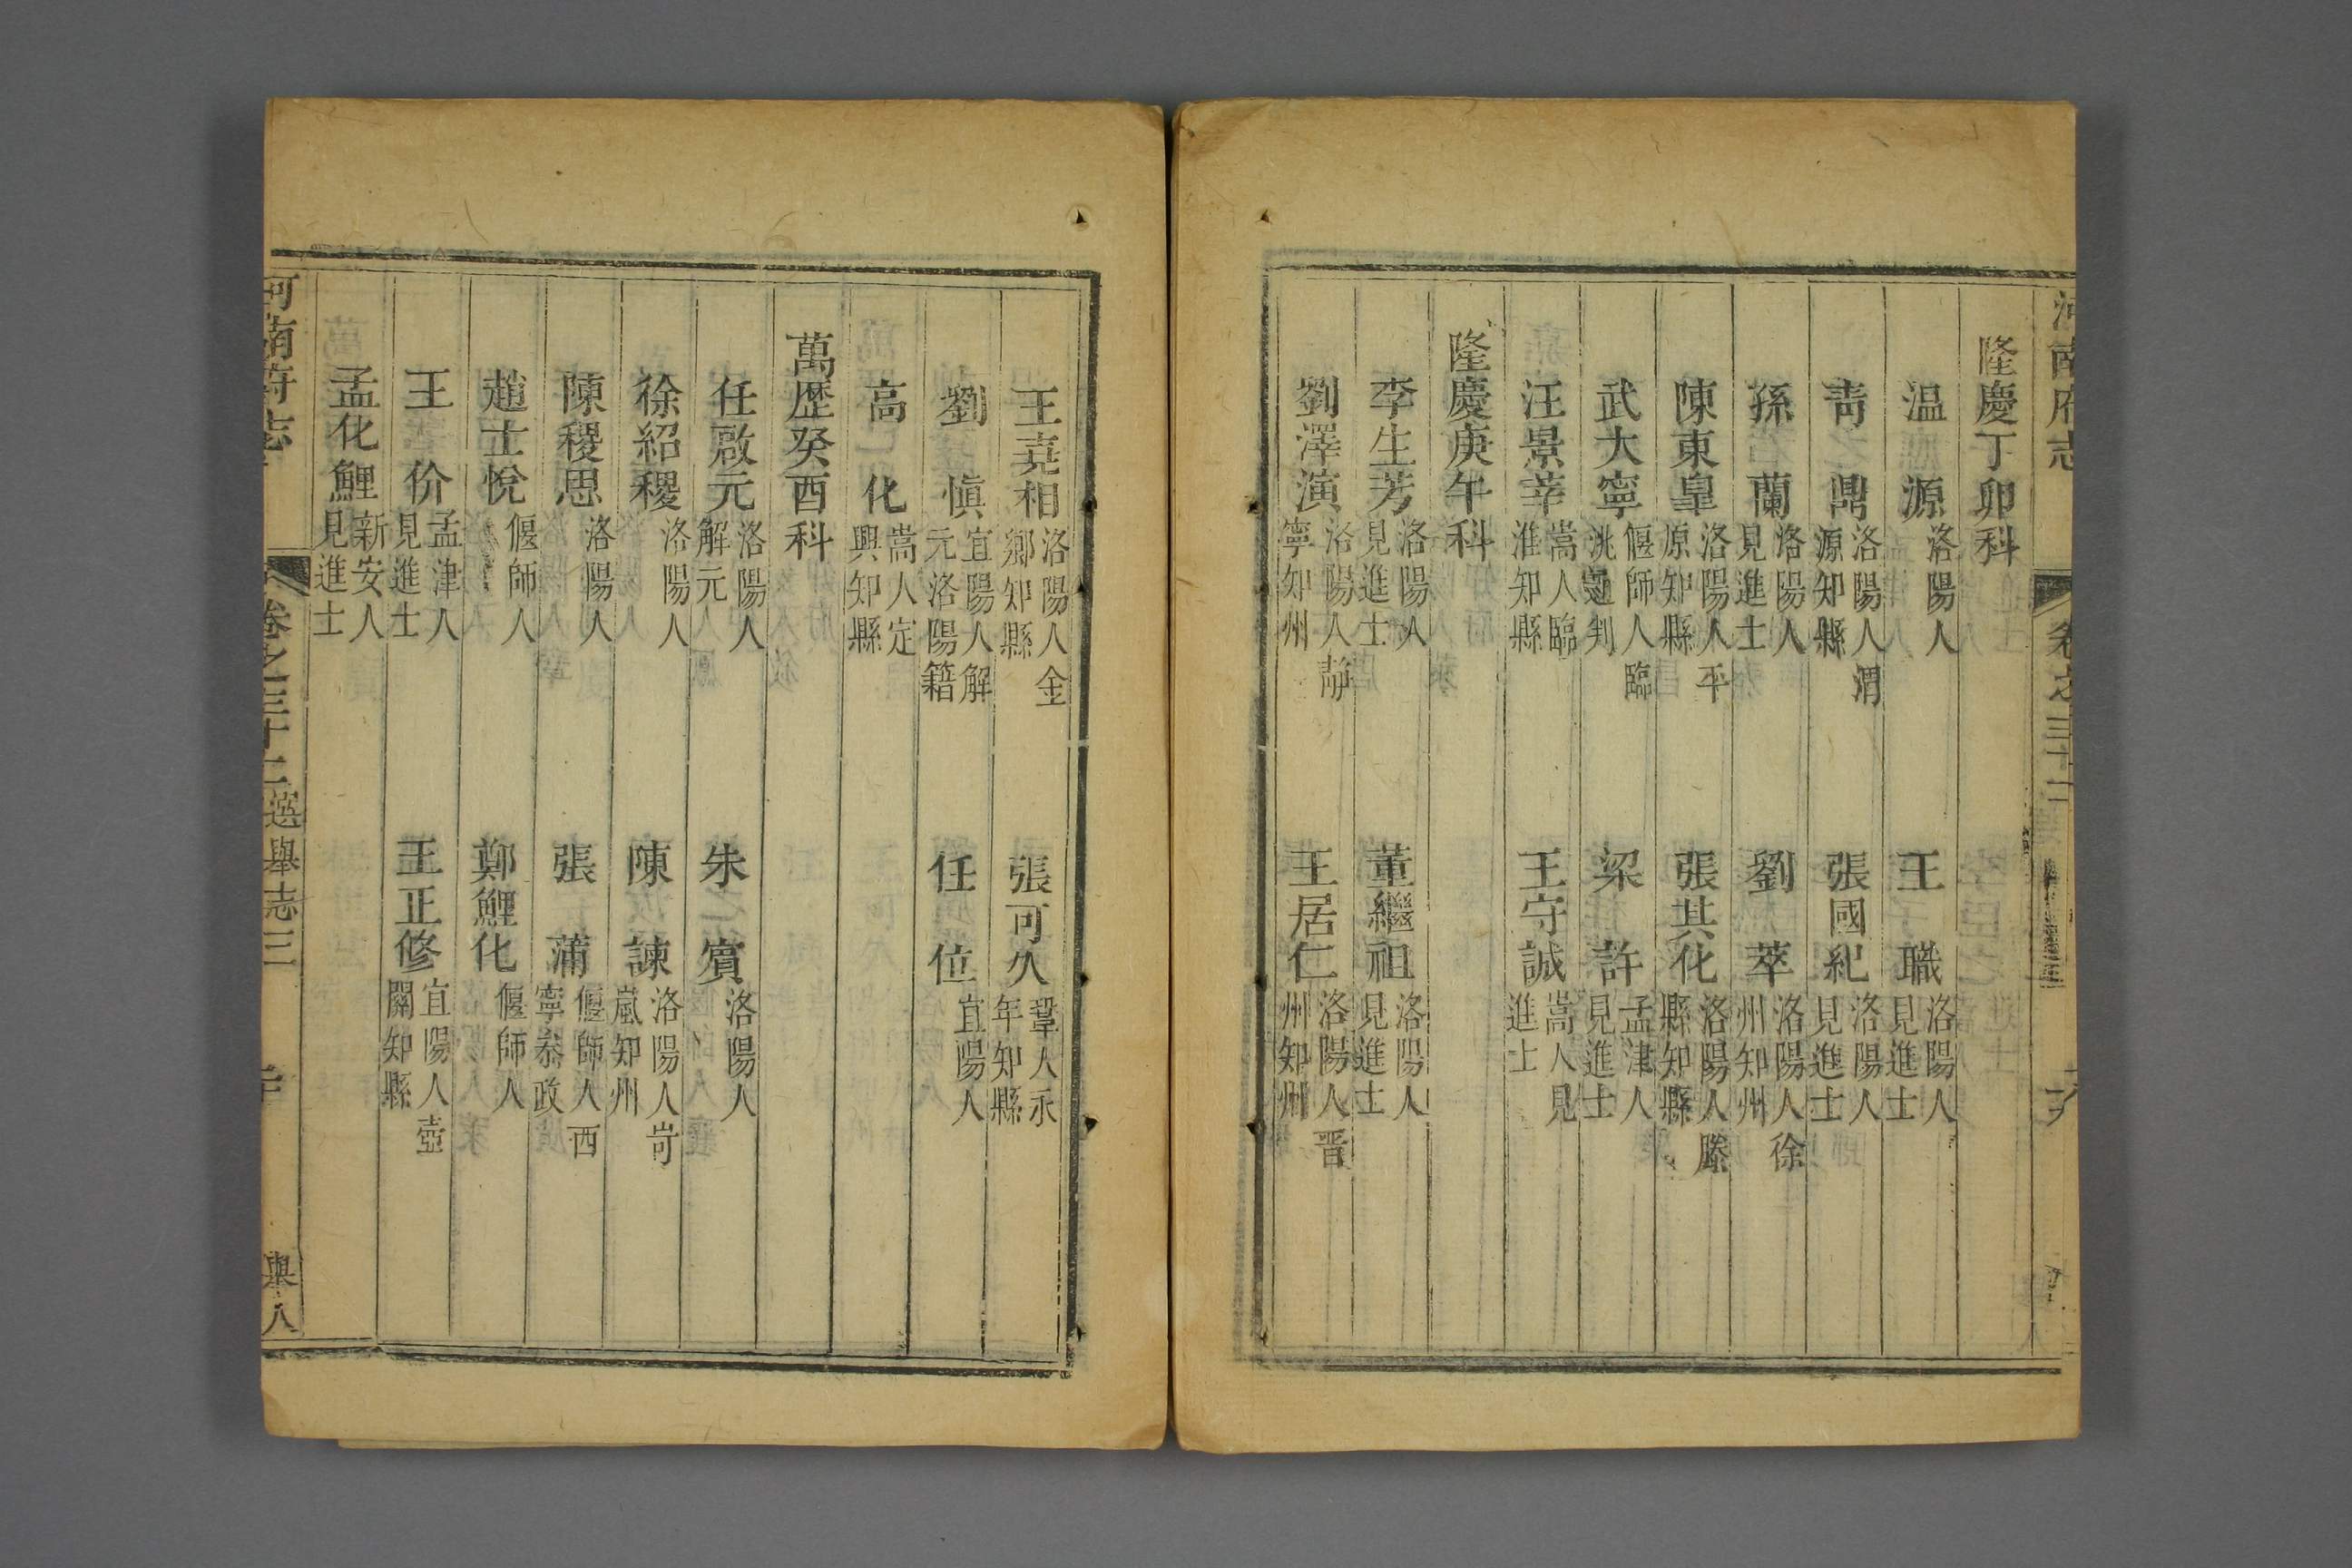 河南府志
卷之三十二
隆慶丁卯科
温源 洛陽人 王職 洛陽人見進士
靑鼎 洛陽人渭源知縣 張國紀 洛陽人見進士
孫蘭 洛陽人見進士 劉萃 洛陽人徐州知州
陳東皐 洛陽人平原知縣 張其化 洛陽人滕縣知縣
武大寧 偃師人臨洮通判 梁許 孟津人見進士
汪景莘 嵩人臨淮知縣 王守誠 嵩人見進士
隆慶庚午科
李生芳 洛陽人見進士 董繼祖 洛陽人見進士
劉澤演 洛陽人靜寧知州 王居仁 洛陽人晋州知州
王堯相 洛陽人金鄉知縣 張可久 鞏人永年知縣
劉愼 宜陽人解元洛陽籍 任位 宜陽人
高化 嵩人定興知縣
萬歷癸酉科
任啟元 洛陽人解元 朱賓 洛陽人
徐紹稷 洛陽人 陳諫 洛陽人岢嵐知州
陳稷思 洛陽人 張蒲 偃師人西寧叅政
趙士悅 偃師人 鄭鯉化 偃師人
王价 孟津人見進士 王正修 宜陽人壺關知縣
孟化鯉 新安人見進士
河南府志 卷之三十二 選舉志三 二十 舉人